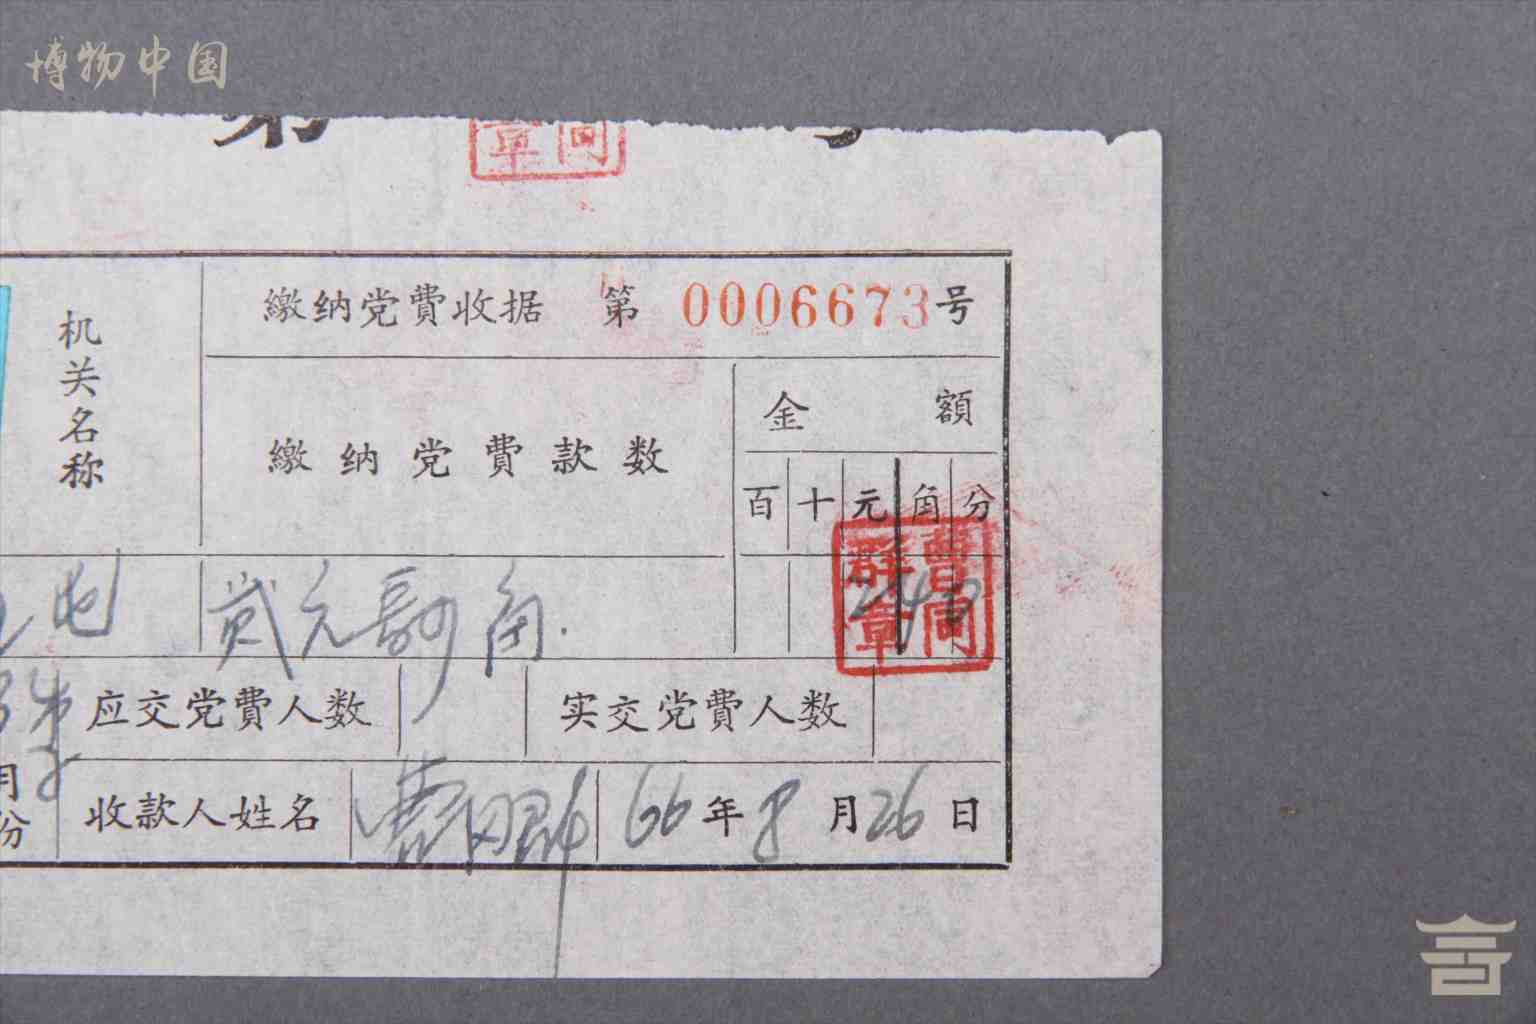 博物中国
第
章同
机关名称
缴纳党費收据 第 0006673 号
缴纳党費款数
金額
百 十 元 角 分
贰元 角.
曹同群章
应交党費人数
实交党費人数
月份
收款人姓名
66 年 8 月 26 日